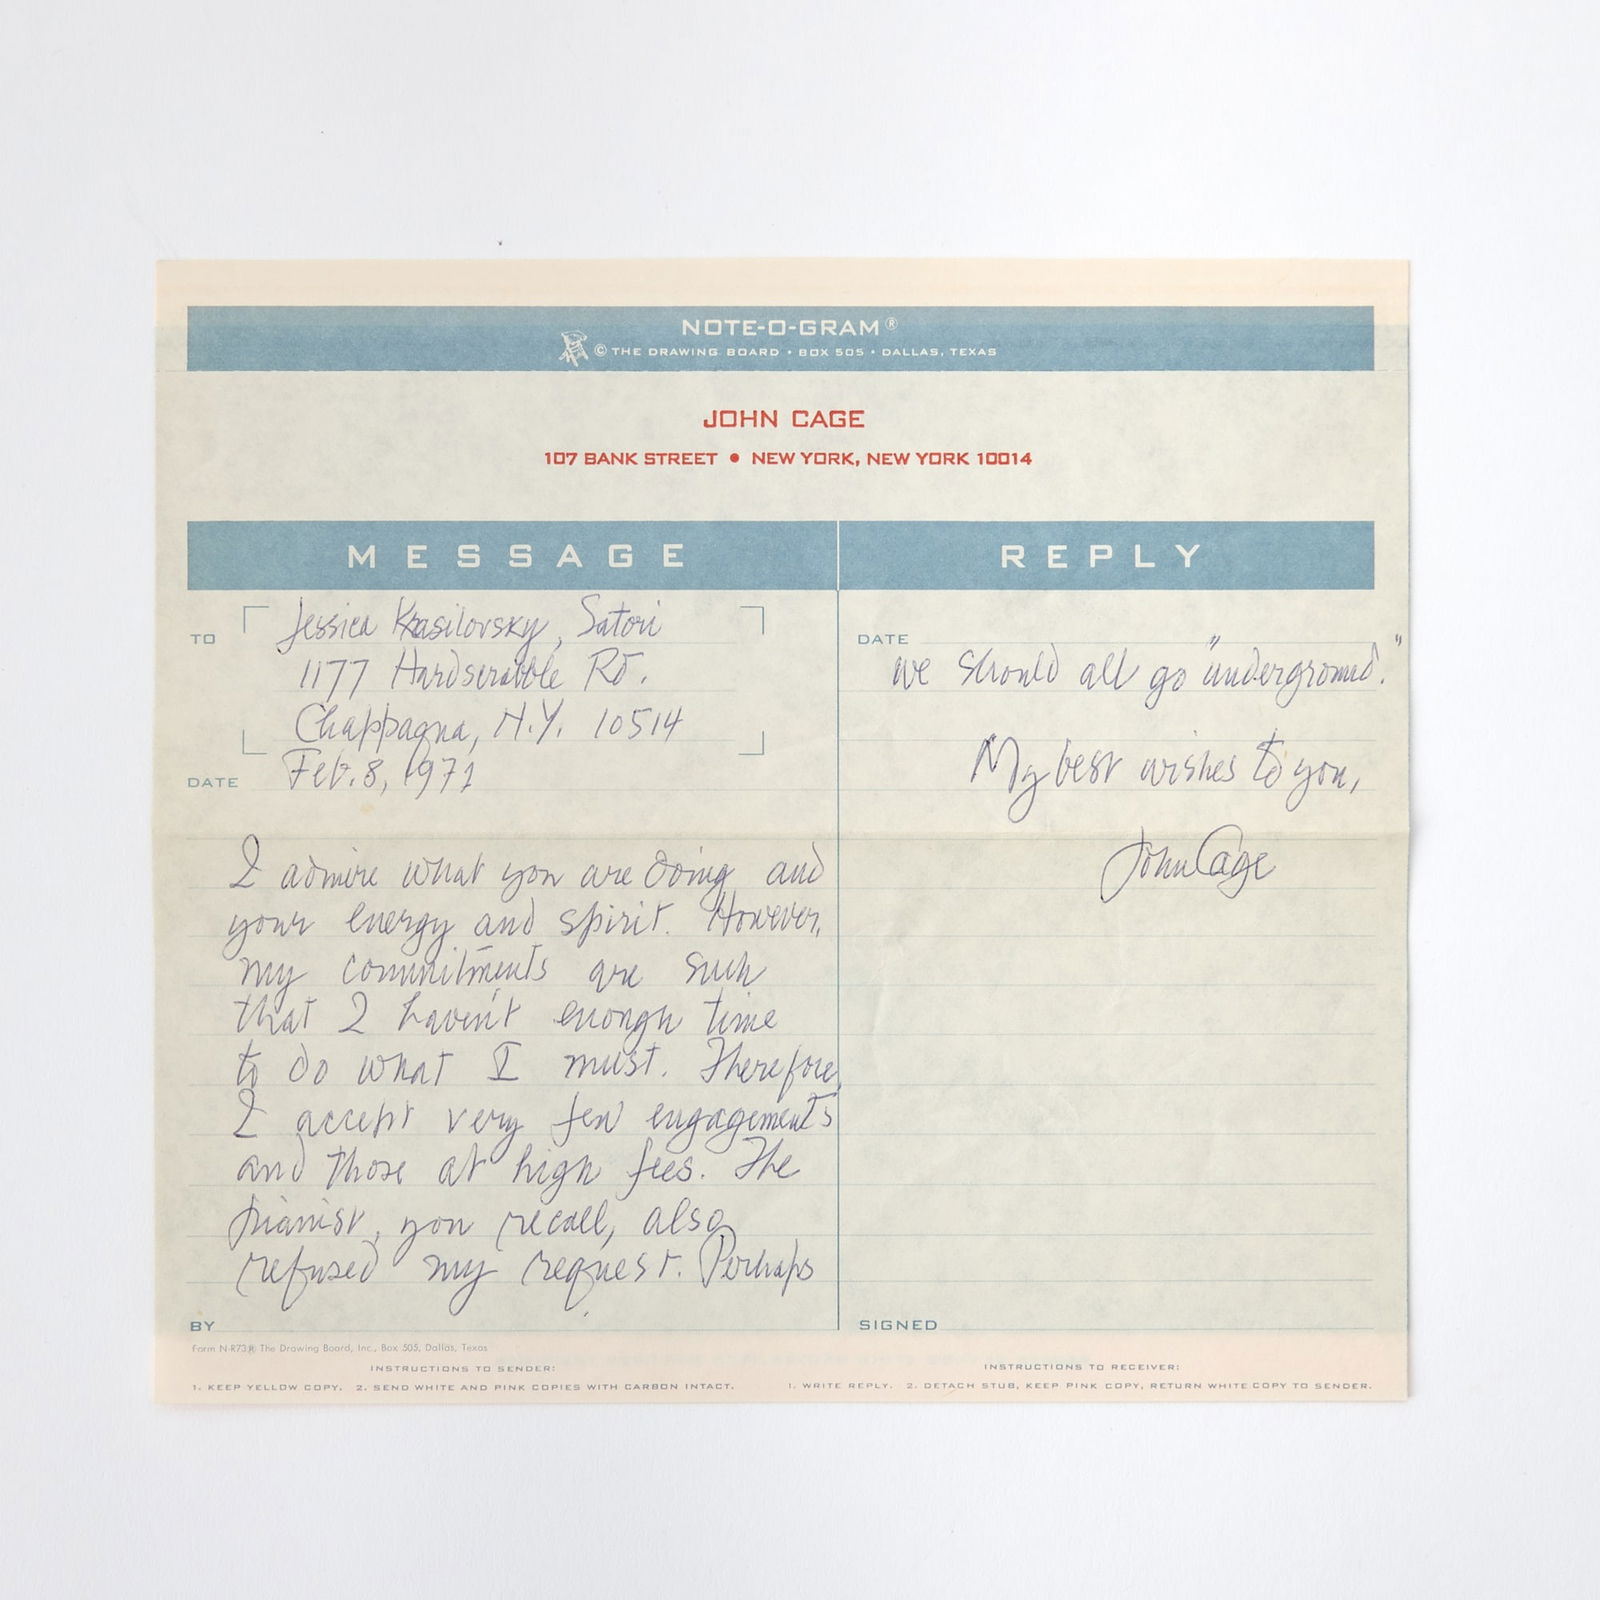 NOTE-O-GRAM®
© THE DRAWING BOARD • BOX 505 • DALLAS, TEXAS
JOHN CAGE
107 BANK STREET • NEW YORK, NEW YORK 10014
MESSAGE
TO
Jessica Krasilovsky, Satori
1177 Hardscrabble Rd.
Chappaqua, N.Y. 10514
DATE Feb. 8, 1971
I admire what you are doing and
your energy and spirit. However,
my commitments are such
that I haven't enough time
to do what I must. Therefore,
I accept very few engagements
and those at high fees. The
pianist, you recall, also
refused my request. Perhaps
BY
REPLY
DATE
we should all go "underground."
My best wishes to you,
John Cage
SIGNED
Form N-R73® The Drawing Board, Inc., Box 505, Dallas, Texas
INSTRUCTIONS TO SENDER:
1. KEEP YELLOW COPY. 2. SEND WHITE AND PINK COPIES WITH CARBON INTACT.
INSTRUCTIONS TO RECEIVER:
1. WRITE REPLY. 2. DETACH STUB, KEEP PINK COPY, RETURN WHITE COPY TO SENDER.